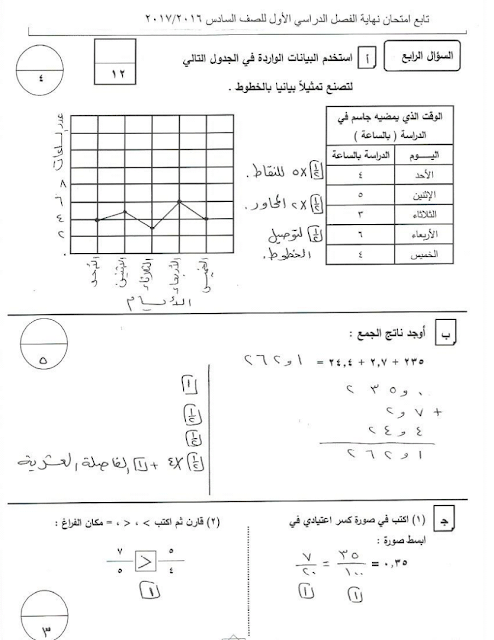 تابع امتحان نهاية الفصل الدراسي الأول للصف السادس ٢٠١٧/٢٠١٦
السؤال الرابع
أ استخدم البيانات الواردة في الجدول التالي
لتصنع تمثيلاً بيانيا بالخطوط .
١٢
٤
الوقت الذي يمضيه جاسم في
الدراسة ( بالساعة )
اليـــوم الدراسة بالساعة
الأحد ٤
الإثنين ٥
الثلاثاء ٣
الأربعاء ٦
الخميس ٤
½ × ٥ للنقاط .
½ × ٢ المحاور .
½ لتوصيل
الخطوط .
عدد الساعات
٨
٦
٤
٢
٠
الأحد
الاثنين
الثلاثاء
الأربعاء
الخميس
الأيام
ب أوجد ناتج الجمع :
٥
٢٣٥ + ٢,٧ + ٢٤,٤ = ٢٦٢,١
٢٣٥,٠
٢,٧ +
٢٤,٤
٢٦٢,١
١
½
½
½ × ٤ + ١ الفاصلة العشرية
ج (١) اكتب في صورة كسر اعتيادي في
ابسط صورة :
٠,٣٥ = ٣٥/١٠٠ = ٧/٢٠
١ ١
(٢) قارن ثم اكتب > ، < ، = مكان الفراغ :
٥/٤ < ٧/٥
١
٣